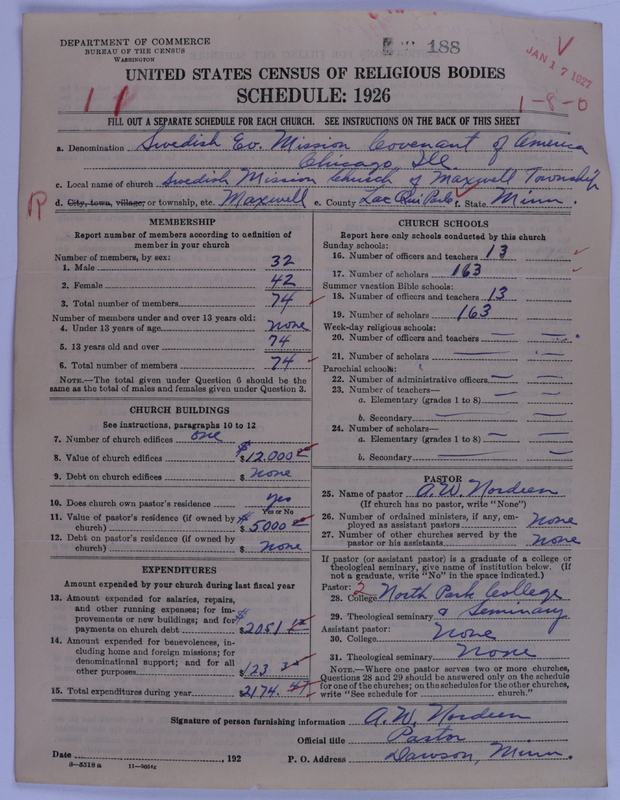 DEPARTMENT OF COMMERCE
BUREAU OF THE CENSUS
WASHINGTON
188
JAN 17 1927
UNITED STATES CENSUS OF RELIGIOUS BODIES
SCHEDULE: 1926
1-8-0
FILL OUT A SEPARATE SCHEDULE FOR EACH CHURCH. SEE INSTRUCTIONS ON THE BACK OF THIS SHEET
a. Denomination Swedish Ev. Mission Covenant of America
Chicago, Ill.
c. Local name of church Swedish Mission Church of Maxwell Township
d. City, town, village, or township, etc. Maxwell e. County Lac Qui Parle f. State Minn.
MEMBERSHIP
Report number of members according to definition of
member in your church
Number of members, by sex:
1. Male 32
2. Female 42
3. Total number of members 74
Number of members under and over 13 years old:
4. Under 13 years of age none
5. 13 years old and over 74
6. Total number of members 74
NOTE.—The total given under Question 6 should be the
same as the total of males and females given under Question 3.
CHURCH BUILDINGS
See instructions, paragraphs 10 to 12
7. Number of church edifices one
8. Value of church edifices $12.000
9. Debt on church edifices $ none
10. Does church own pastor's residence yes
Yes or No
11. Value of pastor's residence (if owned by
church) $5000
12. Debt on pastor's residence (if owned by
church) $ none
EXPENDITURES
Amount expended by your church during last fiscal year
13. Amount expended for salaries, repairs,
and other running expenses; for im-
provements or new buildings; and for
payments on church debt $2051
14. Amount expended for benevolences, in-
cluding home and foreign missions; for
denominational support; and for all
other purposes $123
15. Total expenditures during year $2174
CHURCH SCHOOLS
Report here only schools conducted by this church
Sunday schools:
16. Number of officers and teachers 13
17. Number of scholars 163
Summer vacation Bible schools:
18. Number of officers and teachers 13
19. Number of scholars 163
Week-day religious schools:
20. Number of officers and teachers —
21. Number of scholars —
Parochial schools:
22. Number of administrative officers —
23. Number of teachers—
a. Elementary (grades 1 to 8) —
b. Secondary —
24. Number of scholars—
a. Elementary (grades 1 to 8) —
b. Secondary —
PASTOR
25. Name of pastor A. W. Nordeen
(If church has no pastor, write "None")
26. Number of ordained ministers, if any, em-
ployed as assistant pastors None
27. Number of other churches served by the
pastor or his assistants None
If pastor (or assistant pastor) is a graduate of a college or
theological seminary, give name of institution below. (If
not a graduate, write "No" in the space indicated.)
Pastor: 2
28. College North Park College
29. Theological seminary & Seminary
Assistant pastor:
30. College None
31. Theological seminary None
NOTE.—Where one pastor serves two or more churches,
Questions 28 and 29 should be answered only on the schedule
for one of the churches; on the schedules for the other churches,
write "See schedule for church."
Signature of person furnishing information A. W. Nordeen
Official title Pastor
Date , 192 P. O. Address Dawson, Minn.
8—5518 a 11—9664